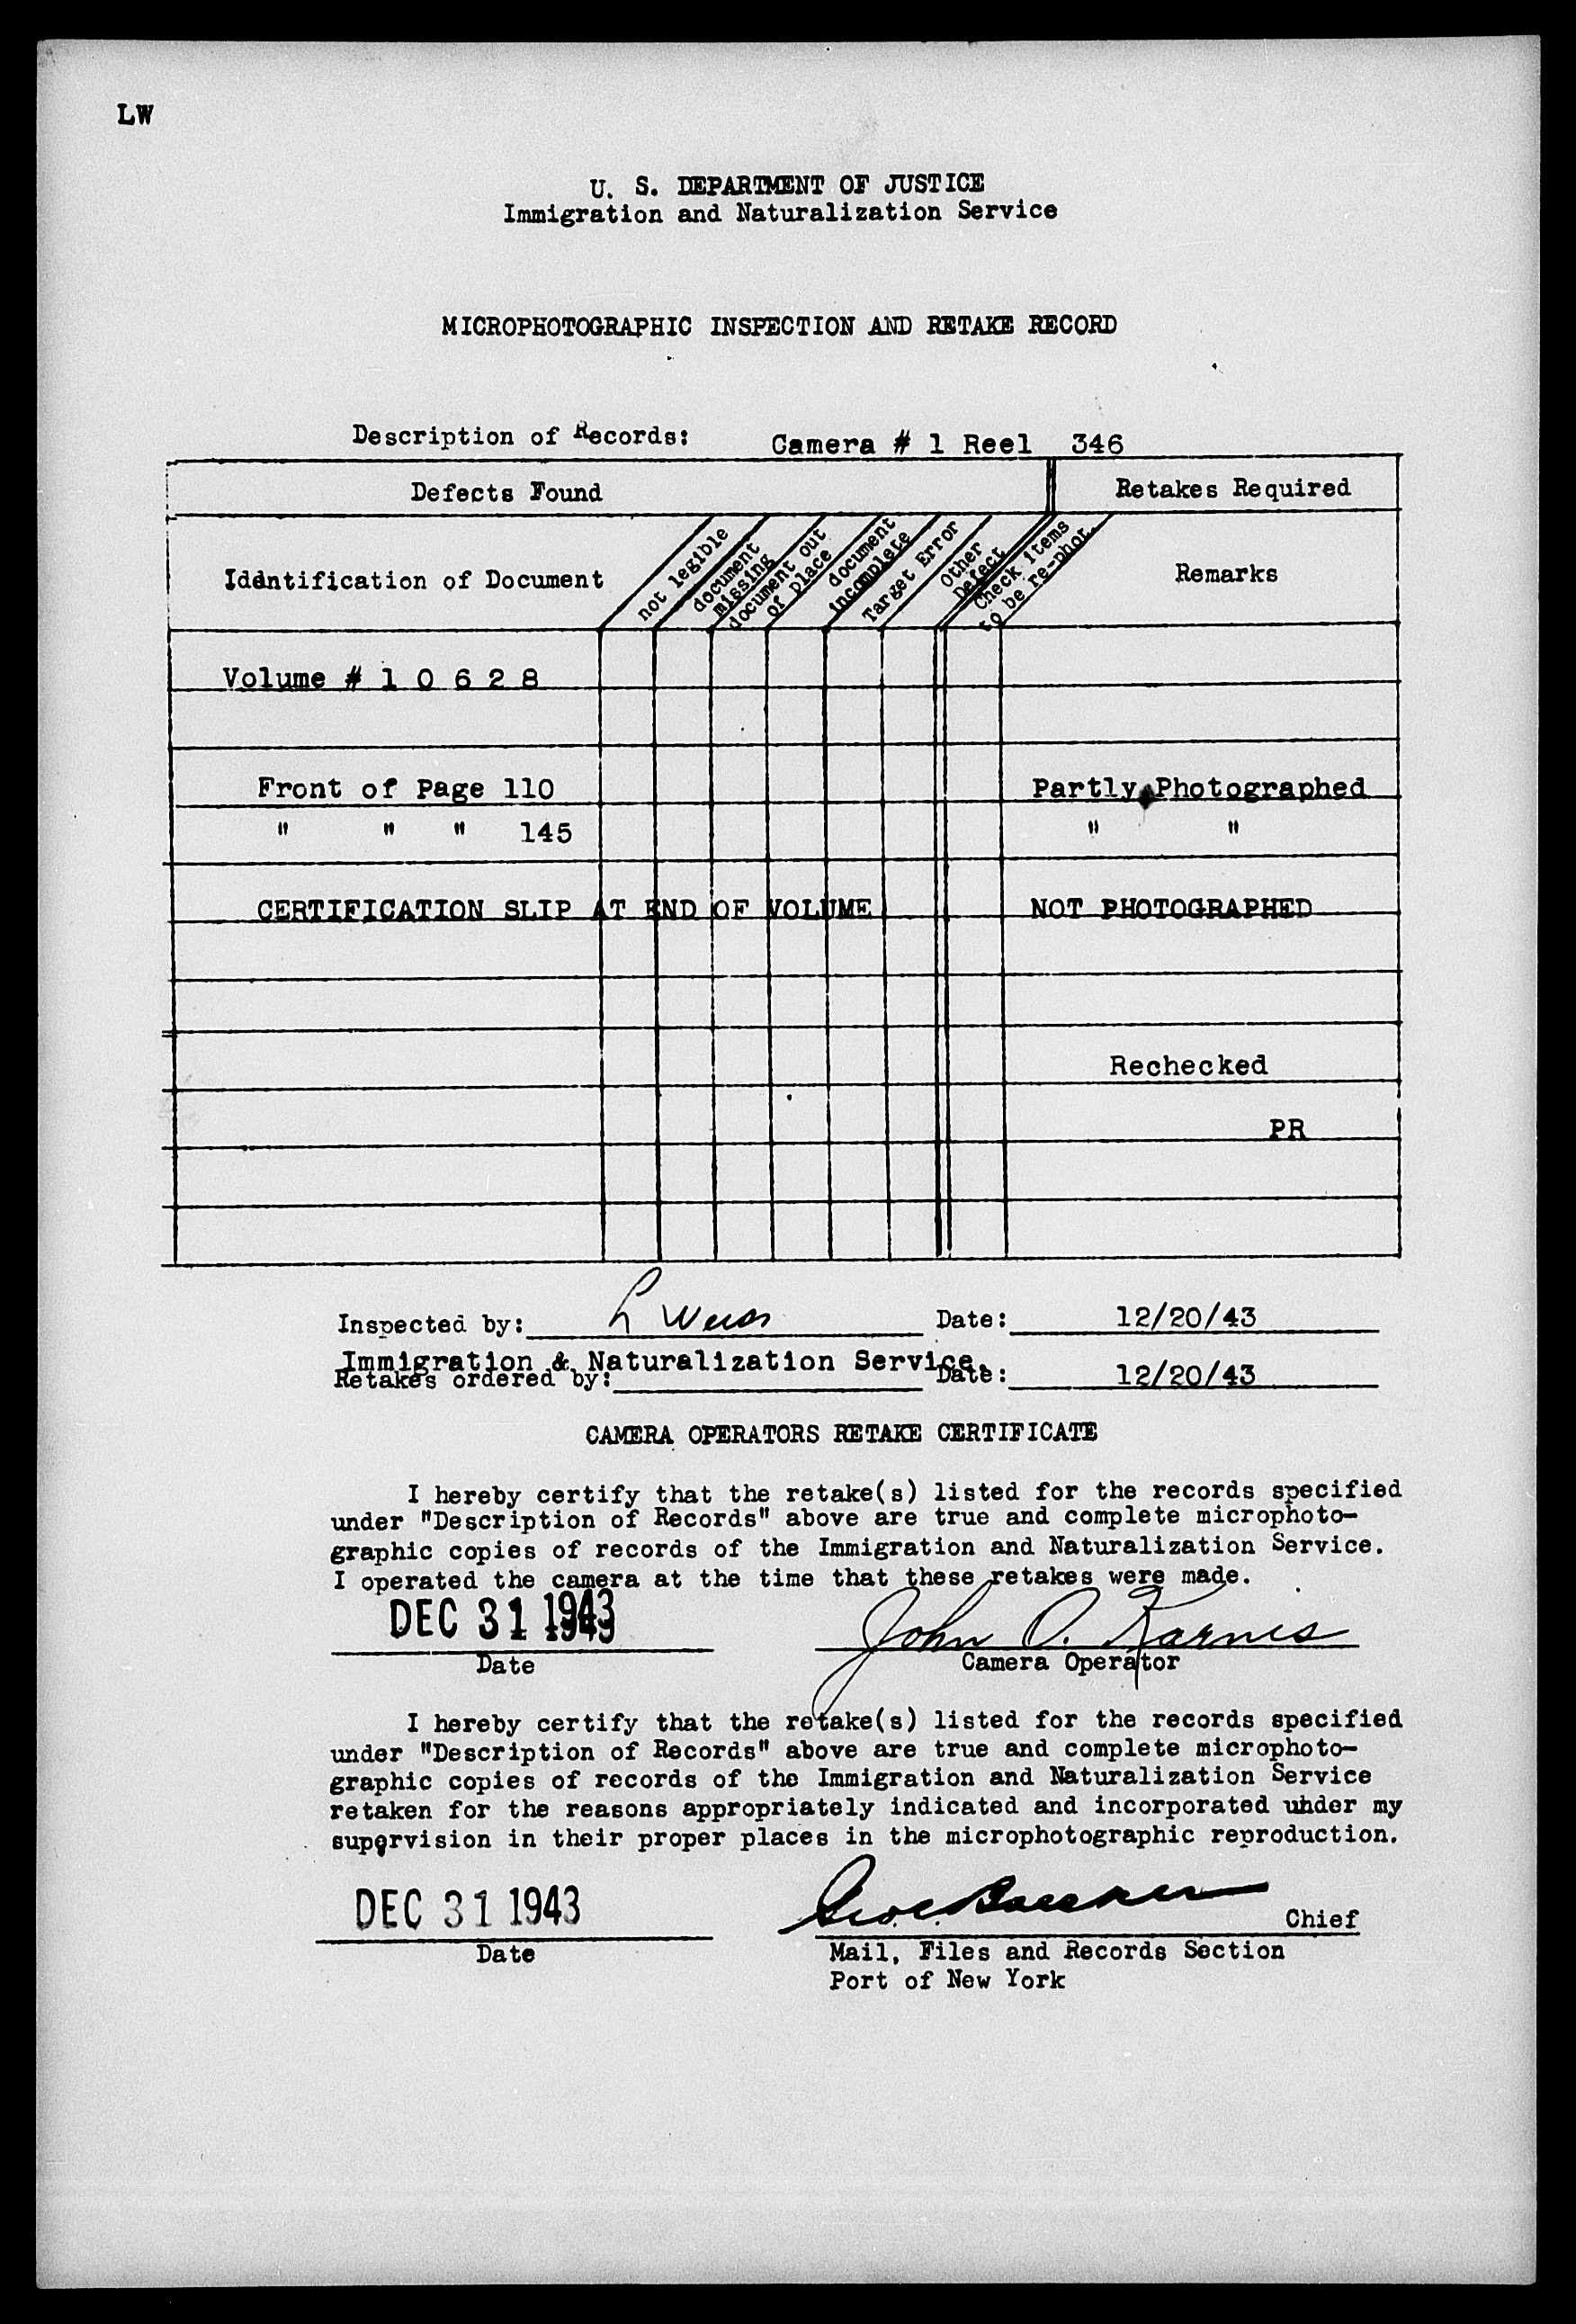 LW
U. S. DEPARTMENT OF JUSTICE
Immigration and Naturalization Service
MICROPHOTOGRAPHIC INSPECTION AND RETAKE RECORD
Description of Records: Camera # 1 Reel 346
Defects Found Retakes Required
Iddntification of Document not legible document missing document out of place document incomplete Target Error Other Defect Check items to be re-phot. Remarks
Volume # 1 0 6 2 8
Front of Page 110 Partly Photographed
" " " 145 " "
CERTIFICATION SLIP AT END OF VOLUME NOT PHOTOGRAPHED
Rechecked
PR
Inspected by: L Weiss Date: 12/20/43
Immigration & Naturalization Service.
Retakes ordered by: Date: 12/20/43
CAMERA OPERATORS RETAKE CERTIFICATE
I hereby certify that the retake(s) listed for the records specified
under "Description of Records" above are true and complete microphoto-
graphic copies of records of the Immigration and Naturalization Service.
I operated the camera at the time that these retakes were made.
DEC 31 1943 John O. Karnes
Date Camera Operator
I hereby certify that the retake(s) listed for the records specified
under "Description of Records" above are true and complete microphoto-
graphic copies of records of the Immigration and Naturalization Service
retaken for the reasons appropriately indicated and incorporated uhder my
supervision in their proper places in the microphotographic reproduction.
DEC 31 1943 Chief
Date Mail, Files and Records Section
Port of New York